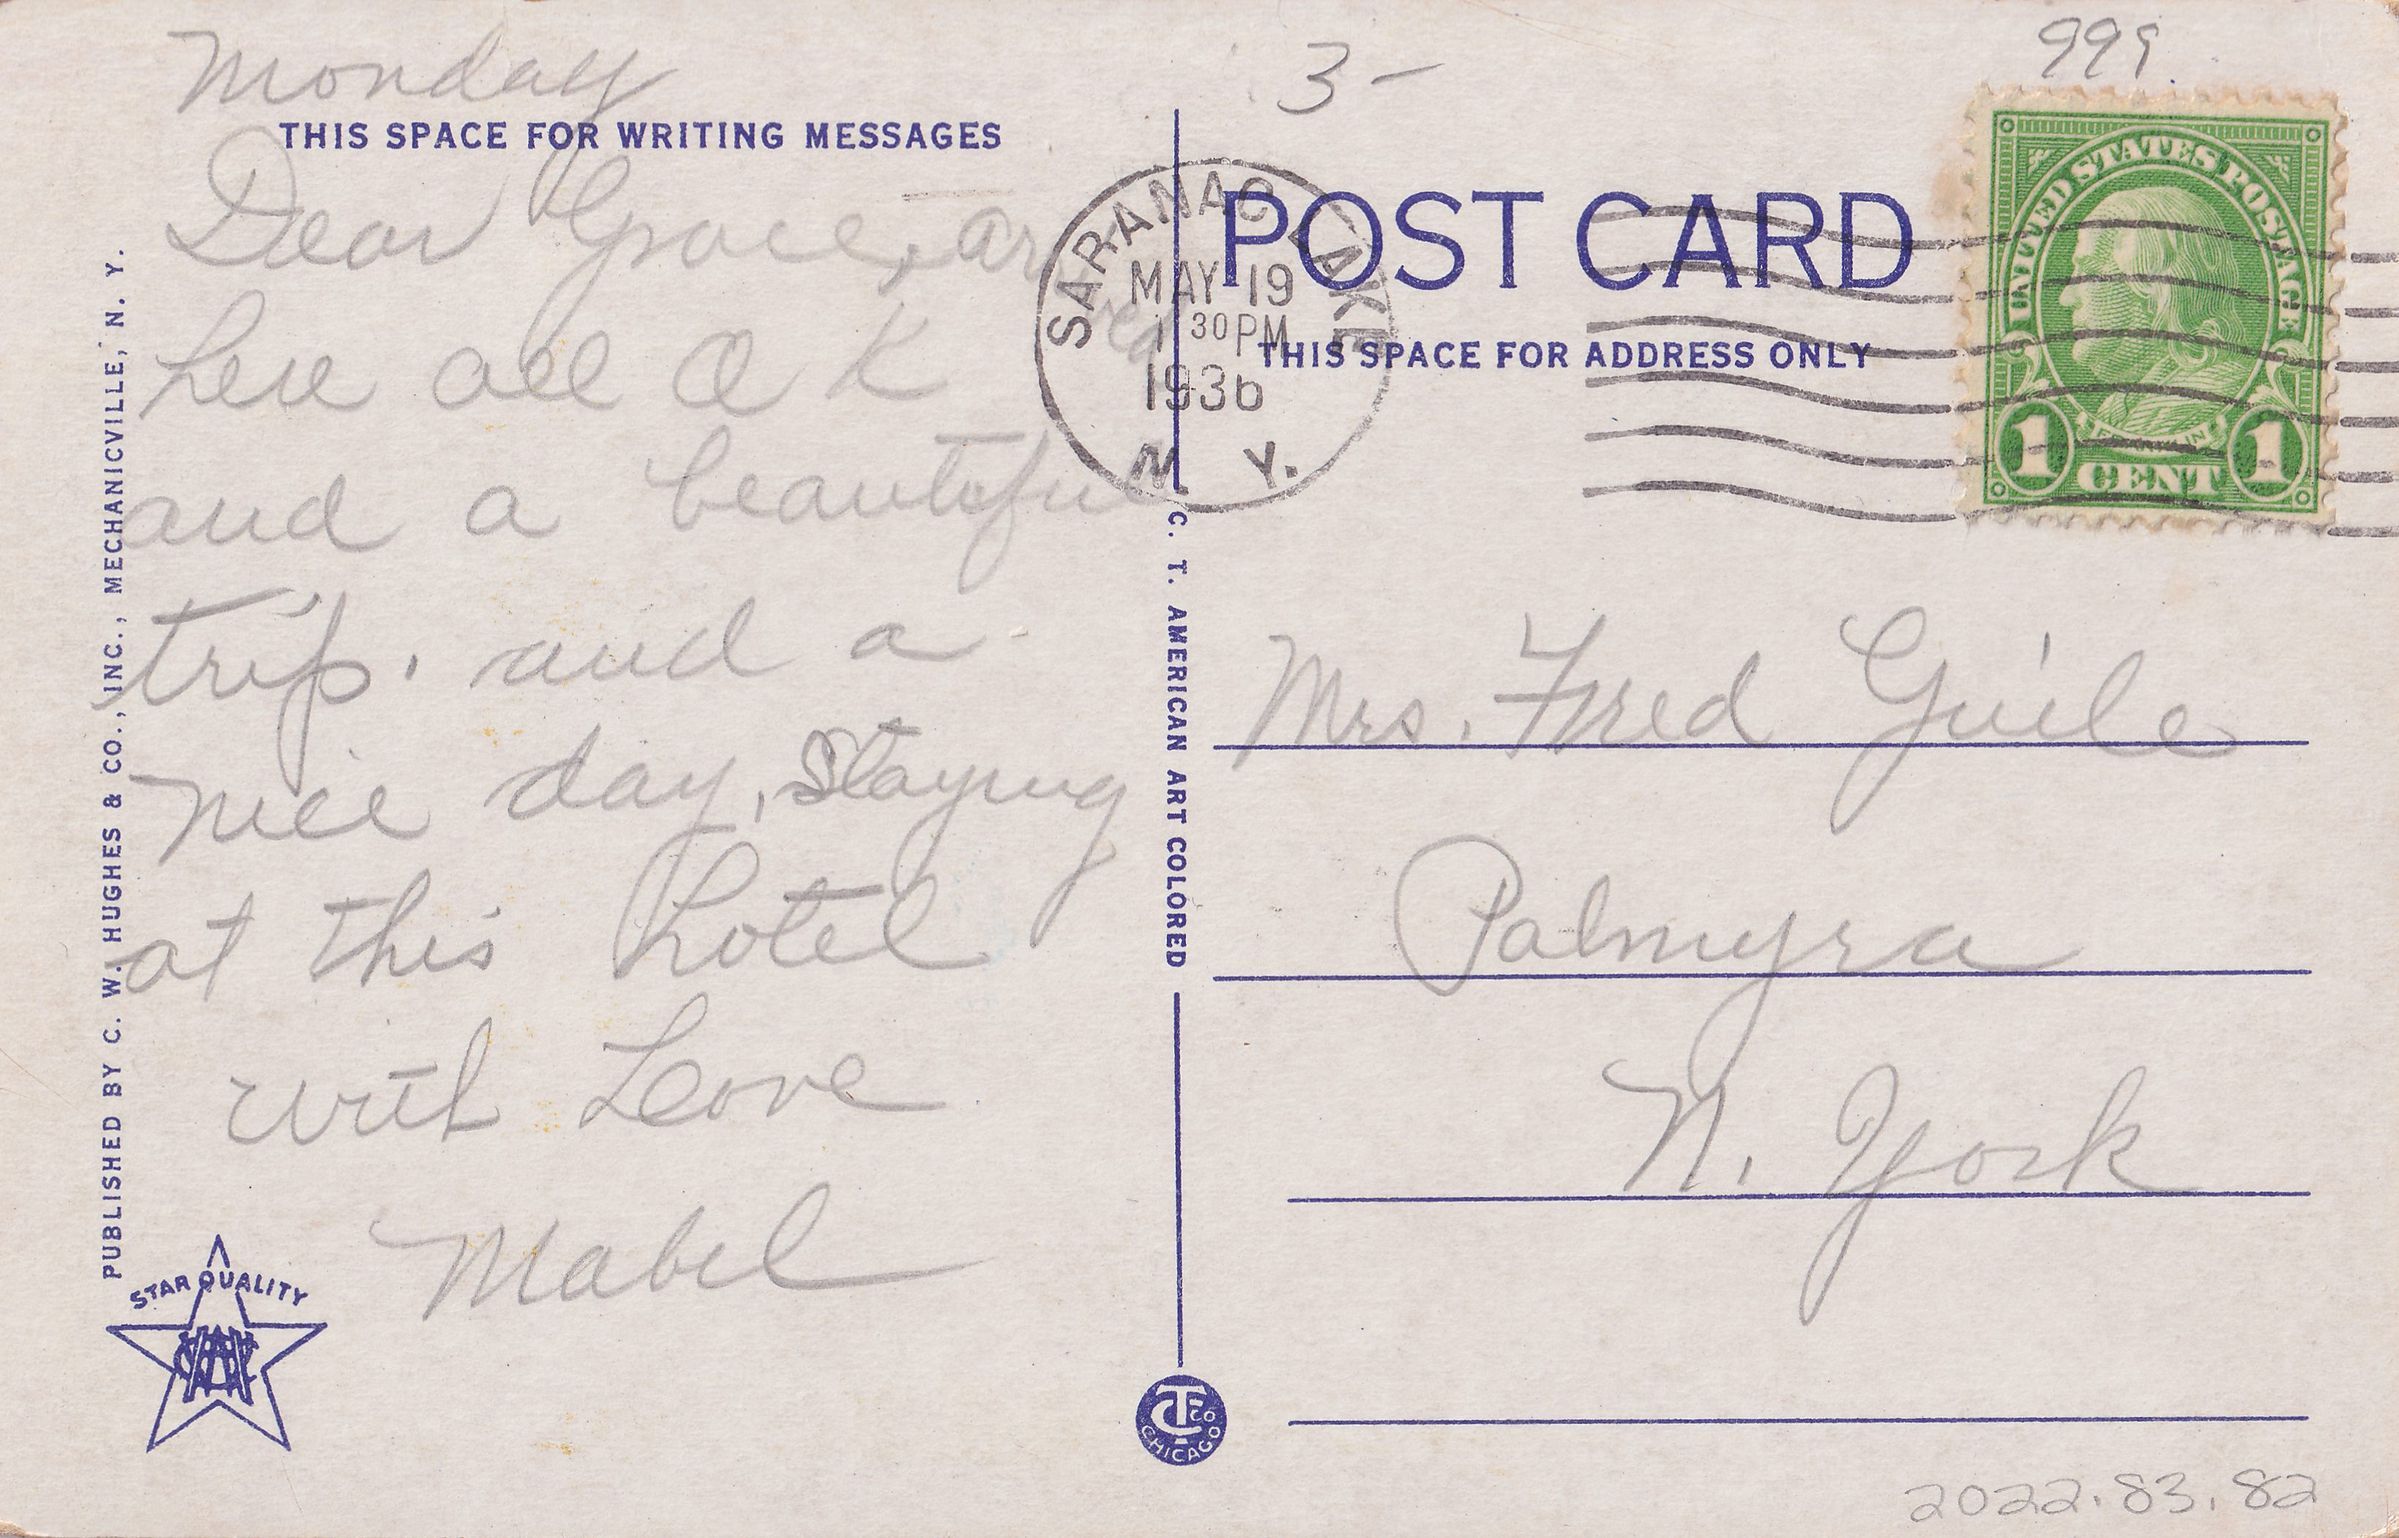 Monday
THIS SPACE FOR WRITING MESSAGES
Dear Grace, arrived
here all O K
and a beautiful
trip, and a
nice day, Staying
at this hotel
with Love
Mabel
PUBLISHED BY C. W. HUGHES & CO., INC., MECHANICVILLE, N. Y.
STAR QUALITY
C. T. AMERICAN ART COLORED
C T CO
CHICAGO
3-
999
SARANAC LAKE
MAY 19
1 30 PM
1936
N. Y.
POST CARD
THIS SPACE FOR ADDRESS ONLY
UNITED STATES POSTAGE
FRANKLIN
1 CENT 1
Mrs. Fred Guile
Palmyra
N. York
2022.83.82